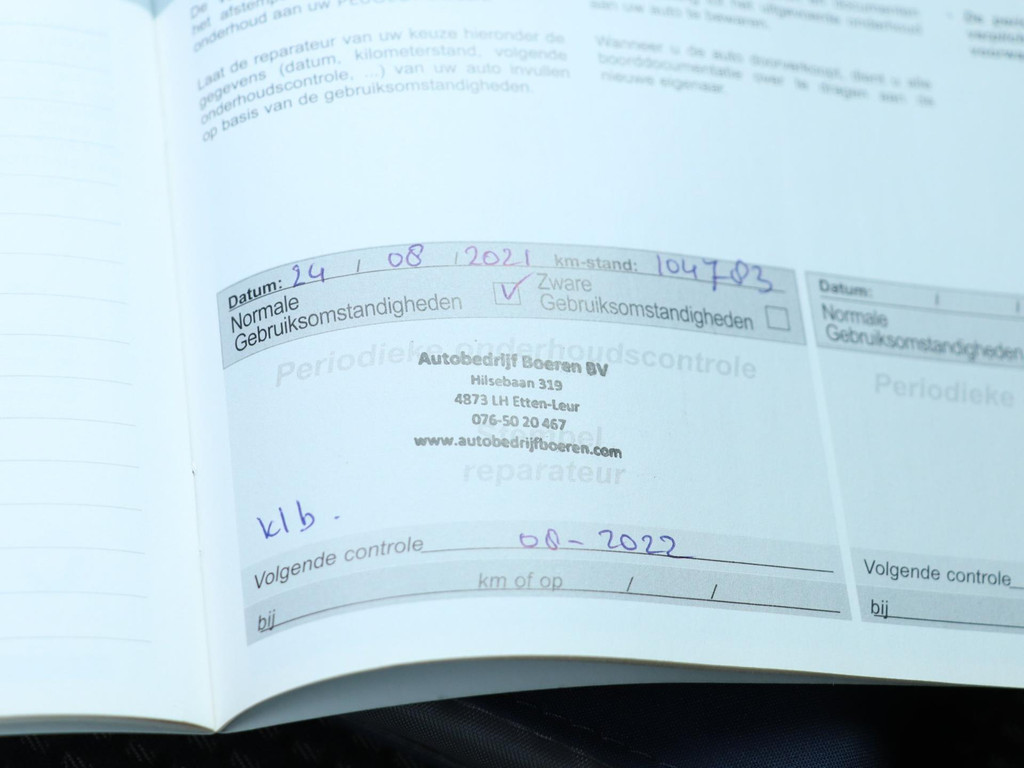 het afstempelen
onderhoud aan uw PEUGEOT
Laat de reparateur van uw keuze hieronder de
gegevens (datum, kilometerstand, volgende
onderhoudscontrole, ...) van uw auto invullen
op basis van de gebruiksomstandigheden.
aan uw auto te bewaren.
Wanneer u de auto doorverkoopt, dient u alle
boorddocumentatie over te dragen aan de
nieuwe eigenaar.
Datum: 24 / 08 / 2021 km-stand: 104783
Normale
Gebruiksomstandigheden
Zware
Gebruiksomstandigheden
Periodieke onderhoudscontrole
Autobedrijf Boeren BV
Hilsebaan 319
4873 LH Etten-Leur
076-50 20 467
Stempel
www.autobedrijfboeren.com
reparateur
klb.
Volgende controle 08-2022
bij km of op / /
Datum: / /
Normale
Gebruiksomstandigheden
Periodieke
Volgende controle
bij